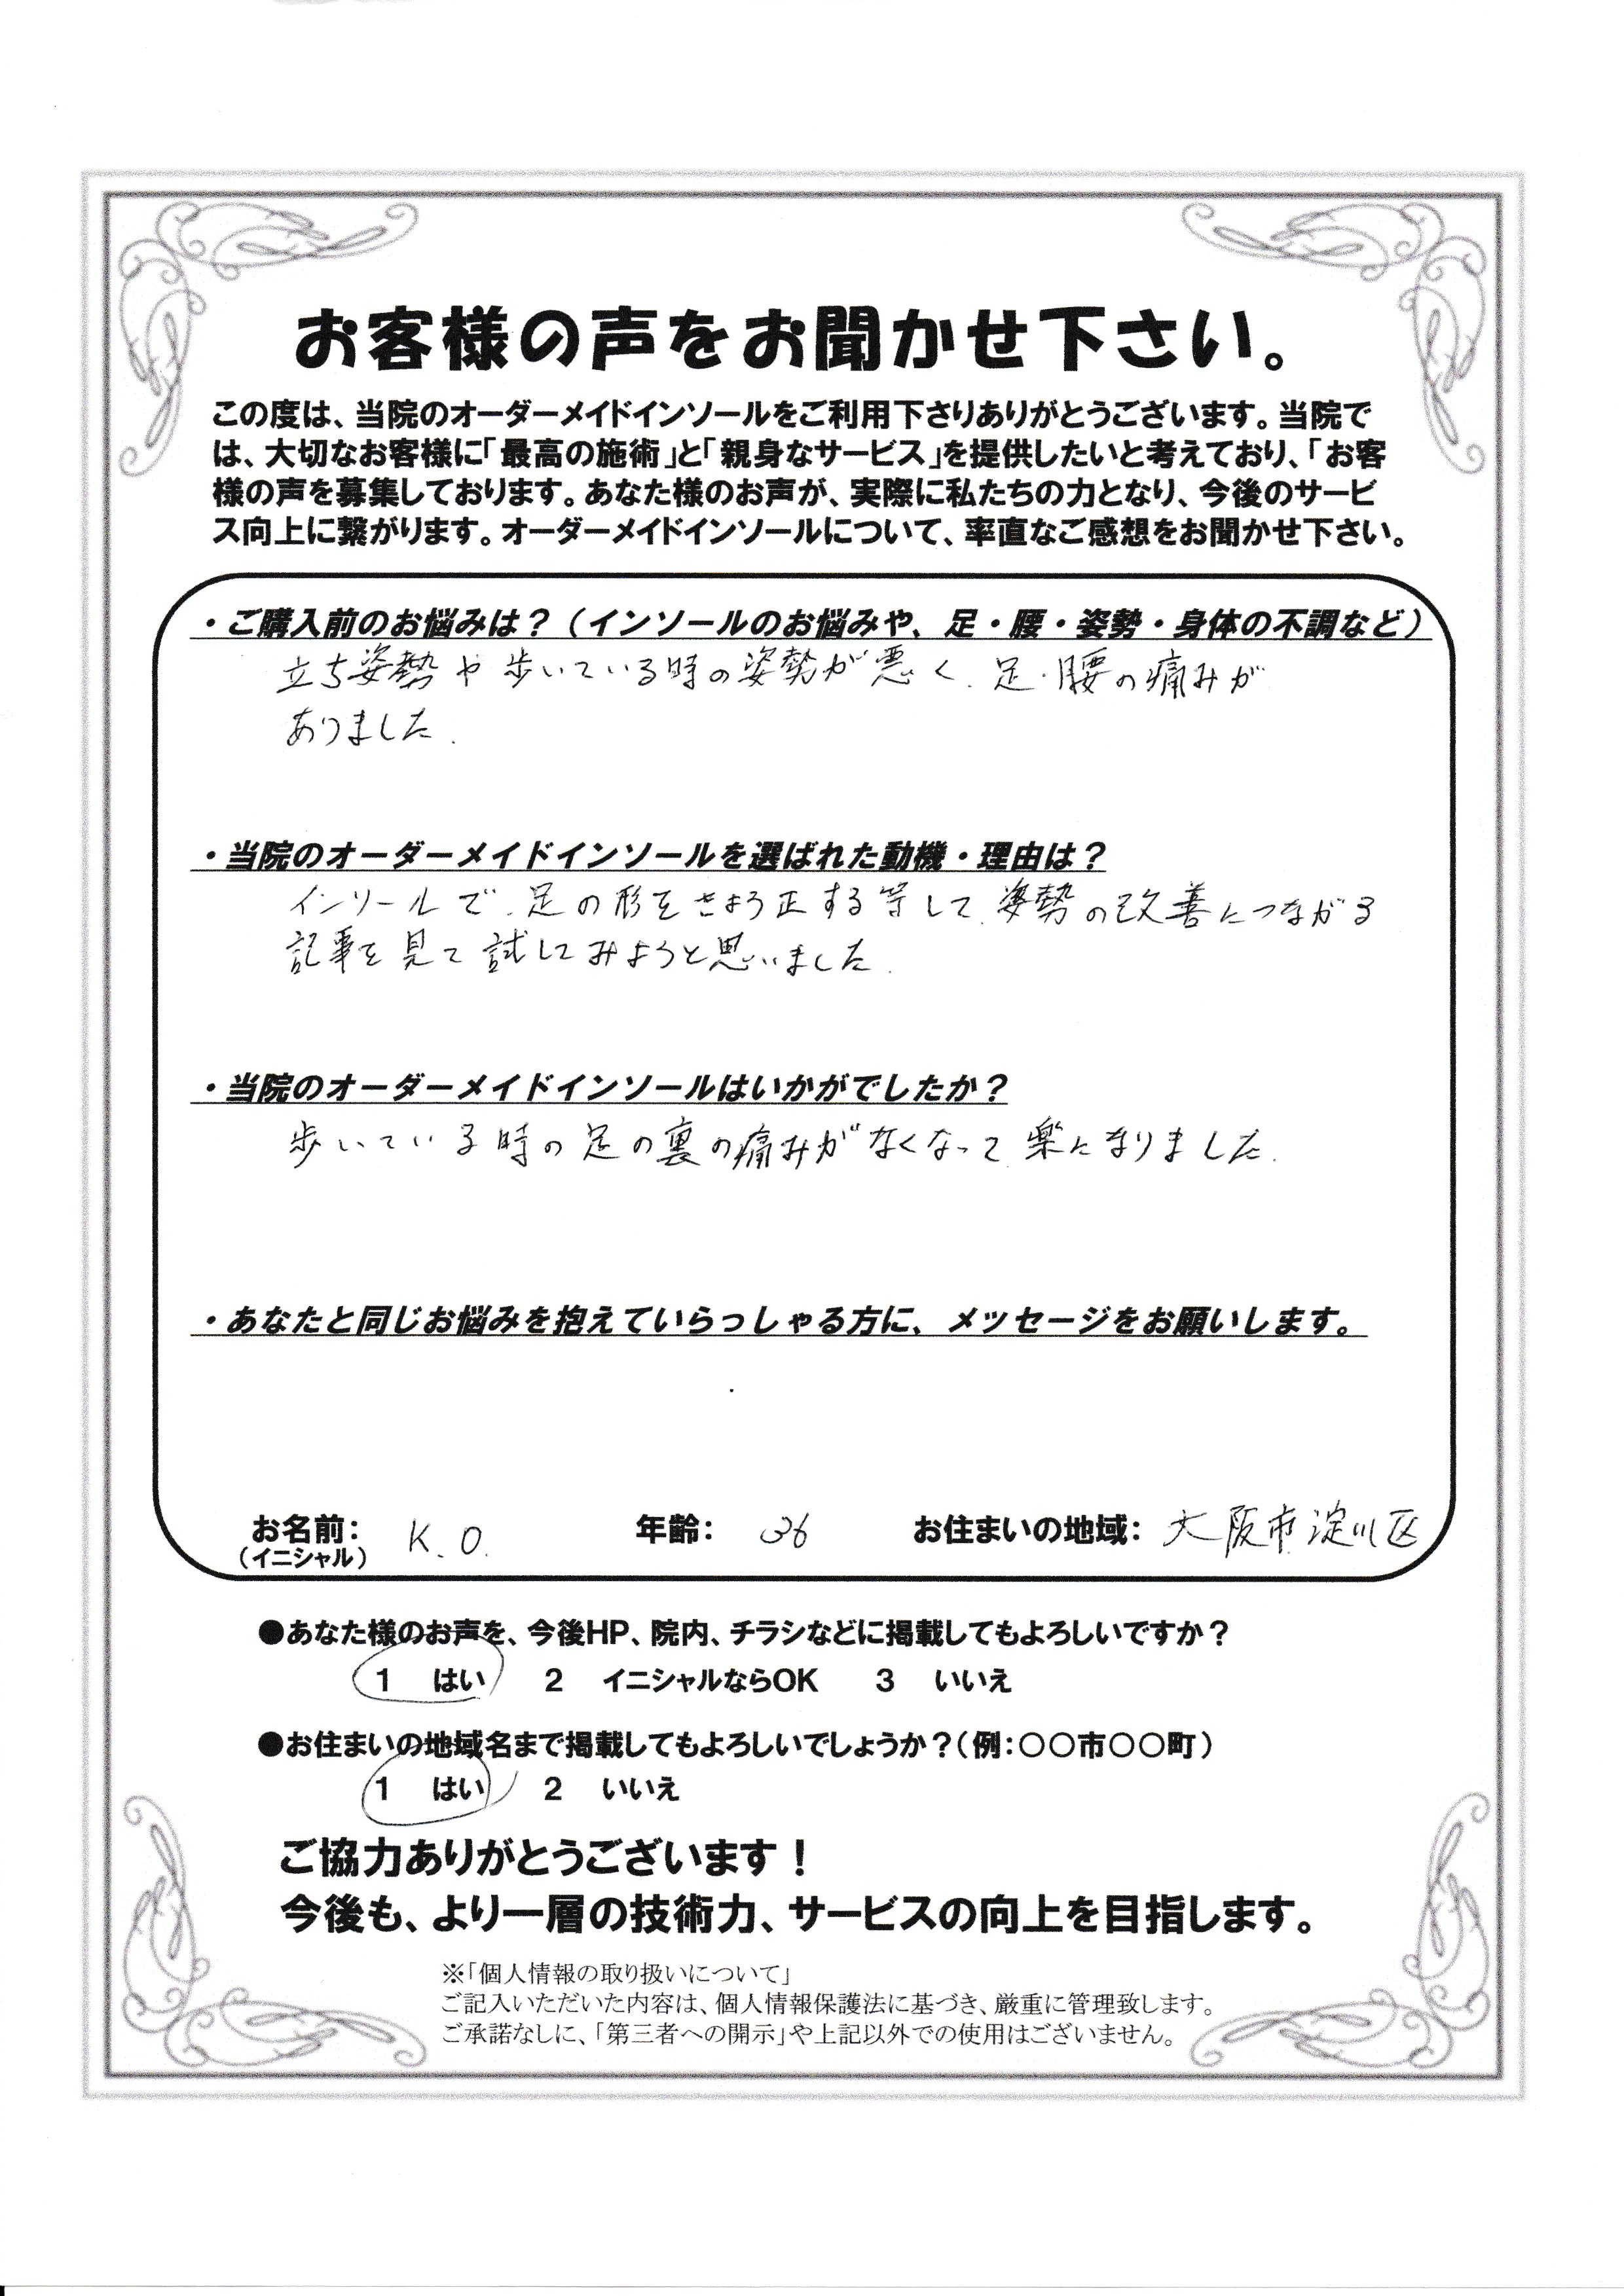 お客様の声をお聞かせ下さい。
この度は、当院のオーダーメイドインソールをご利用下さりありがとうございます。当院で
は、大切なお客様に「最高の施術」と「親身なサービス」を提供したいと考えており、「お客
様の声を募集しております。あなた様のお声が、実際に私たちの力となり、今後のサービ
ス向上に繋がります。オーダーメイドインソールについて、率直なご感想をお聞かせ下さい。
・ご購入前のお悩みは？（インソールのお悩みや、足・腰・姿勢・身体の不調など）
立ち姿勢や歩いている時の姿勢が悪く、足・腰の痛みが
ありました。
・当院のオーダーメイドインソールを選ばれた動機・理由は？
インソールで、足の形をきょう正する等して、姿勢の改善につながる
記事を見て試してみようと思いました。
・当院のオーダーメイドインソールはいかがでしたか？
歩いている時の足の裏の痛みがなくなって楽になりました。
・あなたと同じお悩みを抱えていらっしゃる方に、メッセージをお願いします。
お名前： K.O. 年齢： 36 お住まいの地域： 大阪市淀川区
（イニシャル）
●あなた様のお声を、今後HP、院内、チラシなどに掲載してもよろしいですか？
1 はい 2 イニシャルならOK 3 いいえ
●お住まいの地域名まで掲載してもよろしいでしょうか？（例：○○市○○町）
1 はい 2 いいえ
ご協力ありがとうございます！
今後も、より一層の技術力、サービスの向上を目指します。
※「個人情報の取り扱いについて」
ご記入いただいた内容は、個人情報保護法に基づき、厳重に管理致します。
ご承諾なしに、「第三者への開示」や上記以外での使用はございません。